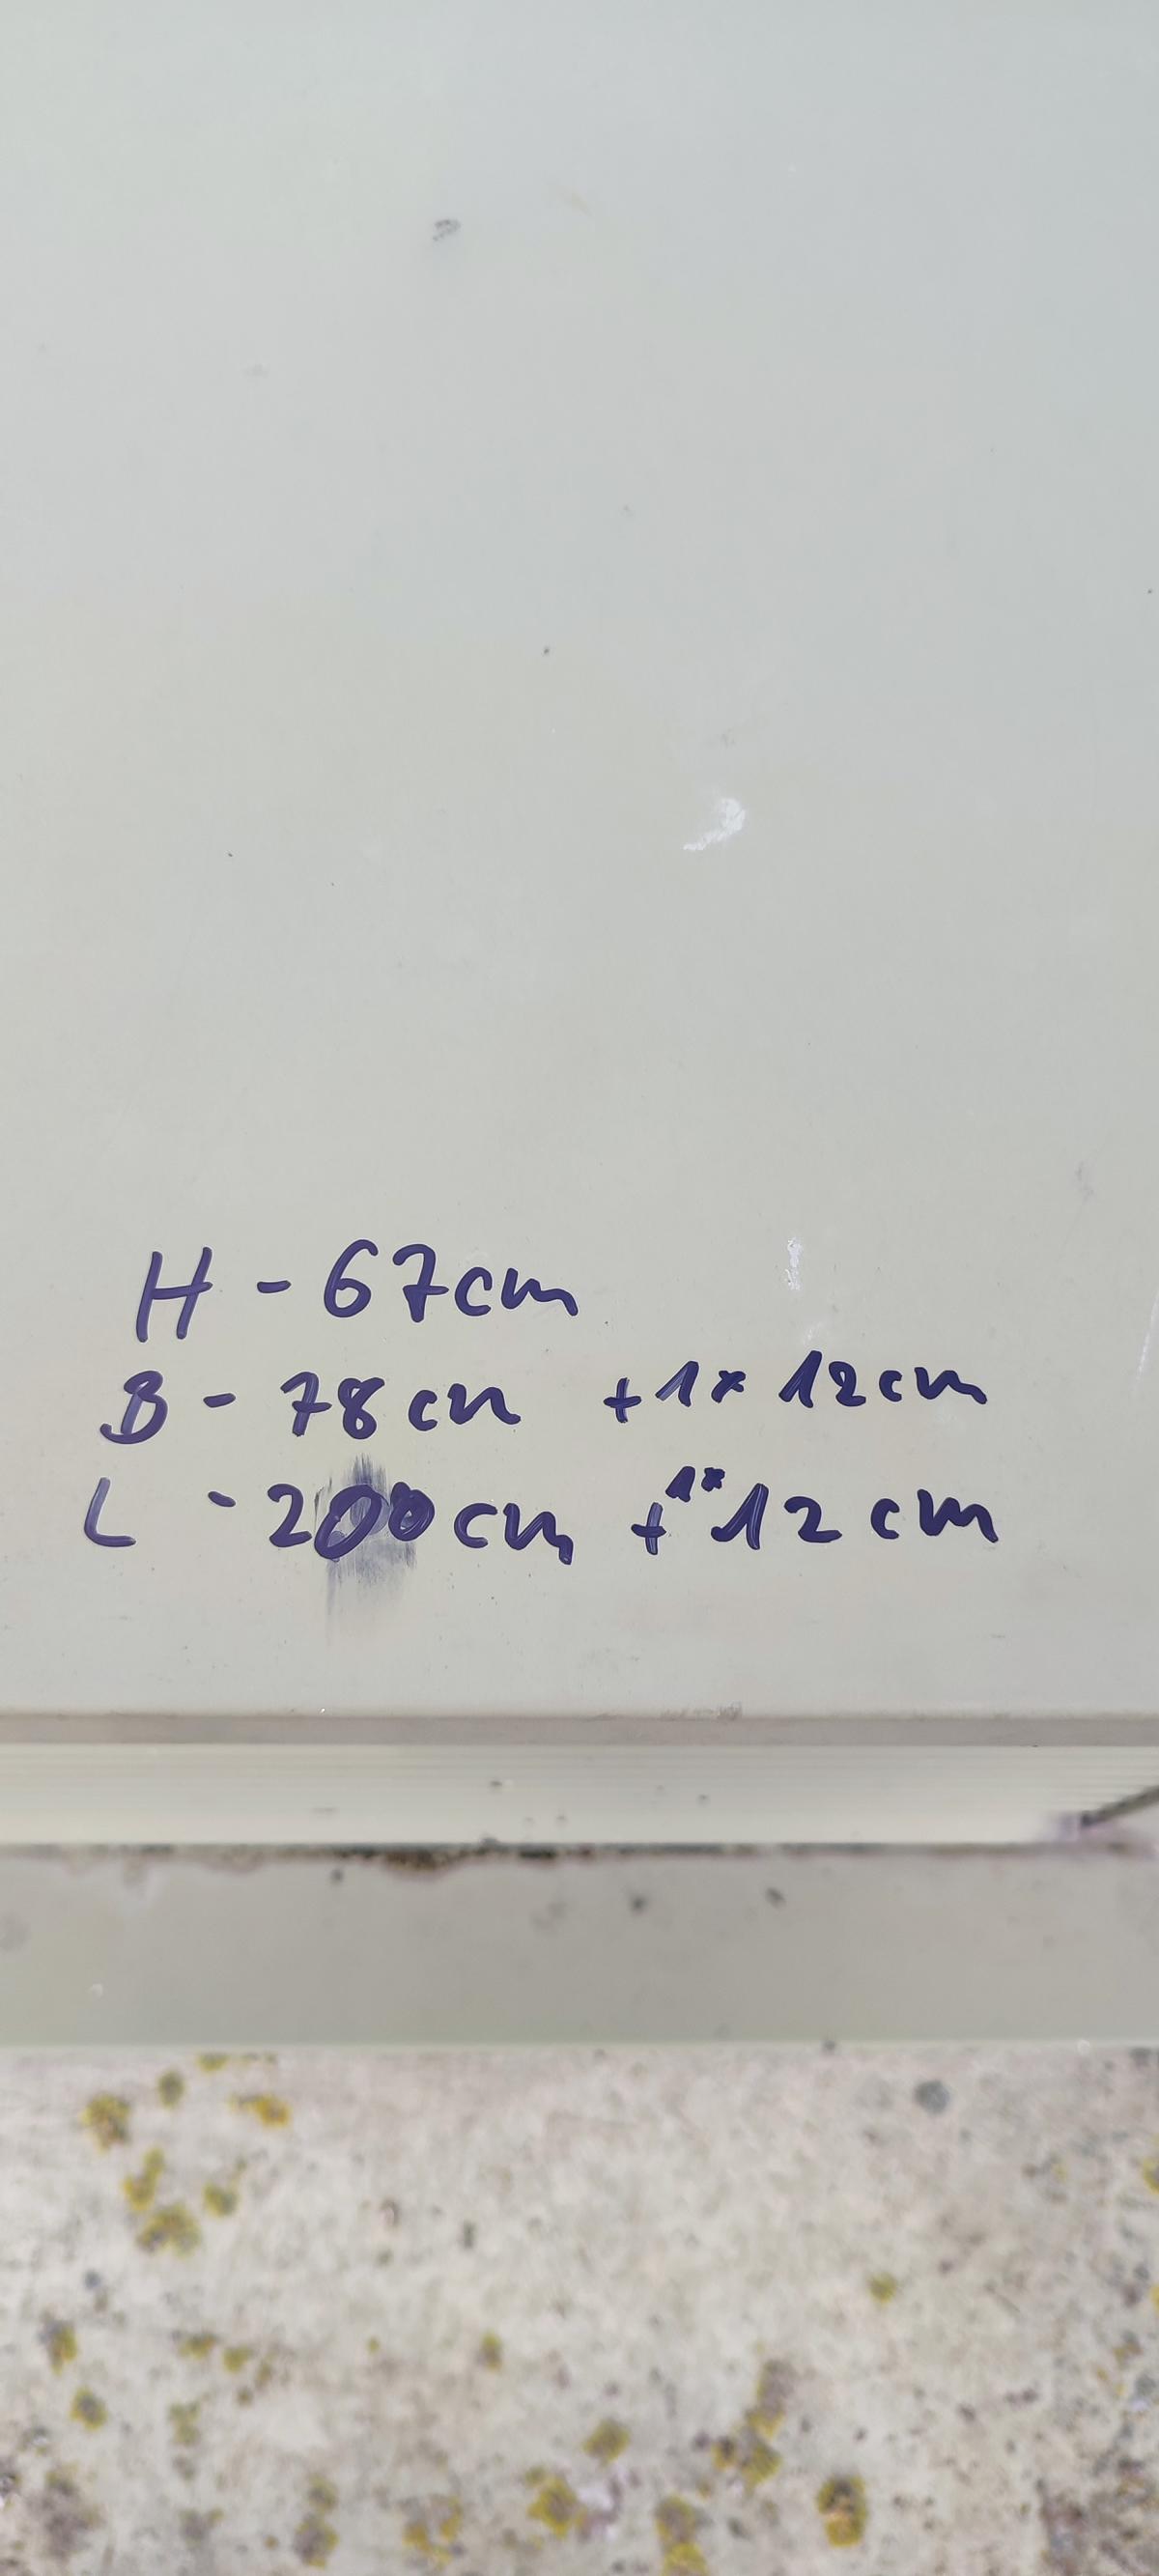 H - 67cm
B - 78cm + 1x 12cm
L - 200cm + 1x 12cm